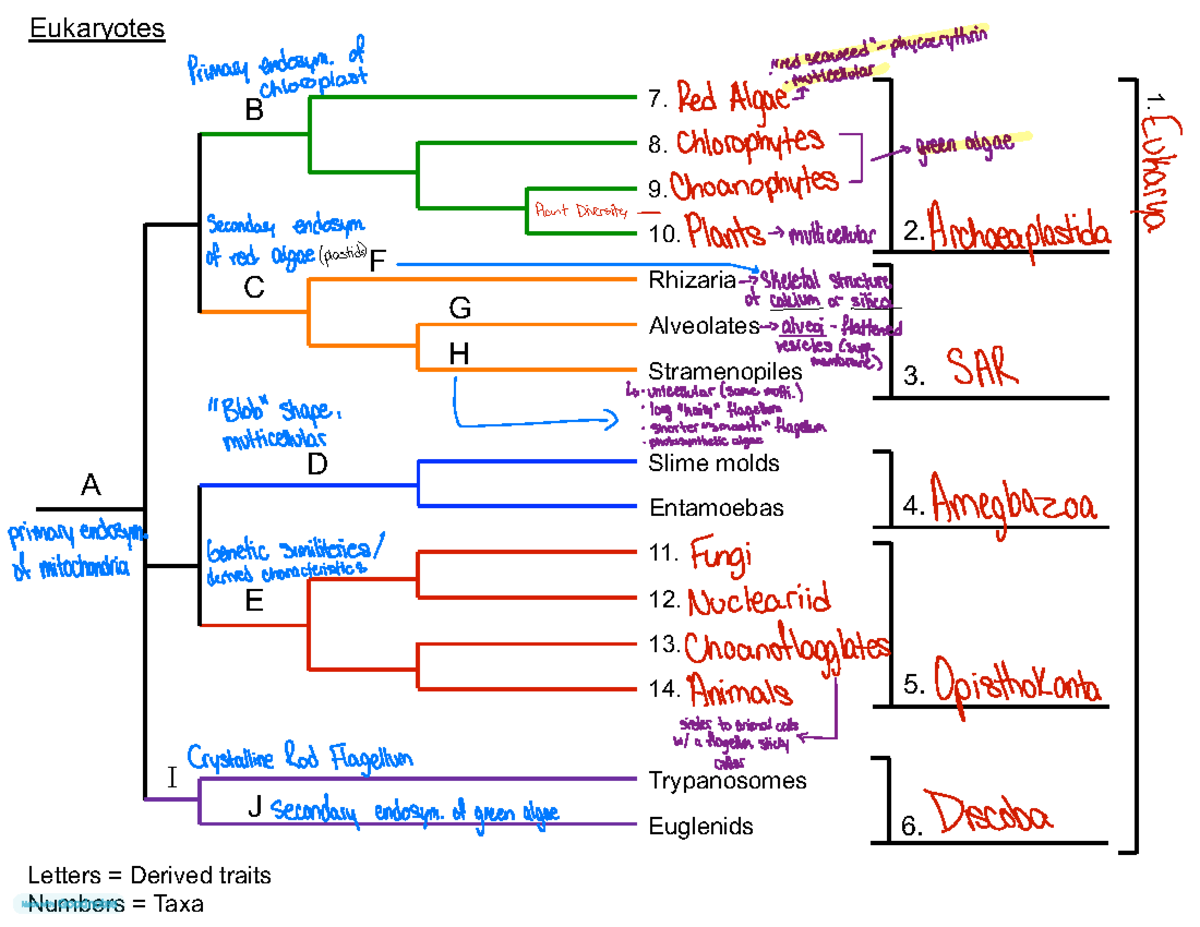 Eukaryotes
Primary endosym. of
chloroplast
B
"red seaweed" - phycoerythrin
• multicellular
7. Red Algae →
8. Chlorophytes
→ green algae
9. Choanophytes
Plant Diversity
10. Plants → multicellular
2. Archaeaplastida
1. Eukarya
Secondary endosym
of red algae (plastids)
F
C
Rhizaria → Skeletal structure
of calcium or silica
G
Alveolates → alveoi - flattened
vesicles (supp.
membrane)
H
Stramenopiles
3. SAR
↳ • unicellular (some multi.)
• long "hairy" flagellum
• shorter "smooth" flagellum
• photosynthetic algae
"Blob" shape,
multicellular
D
Slime molds
Entamoebas
4. Amegbazoa
A
primary endosym.
of mitochondria
Genetic similiteries/
derived characteristics
E
11. Fungi
12. Nucleariid
13. Choanoflagglates
14. Animals
5. Opisthokonta
sister to animal cells
w/ a flagellum sticky
collar
Crystalline Rod Flagellum
I
Trypanosomes
J Secondary endosym. of green algae
Euglenids
6. Discoba
Letters = Derived traits
Numbers = Taxa